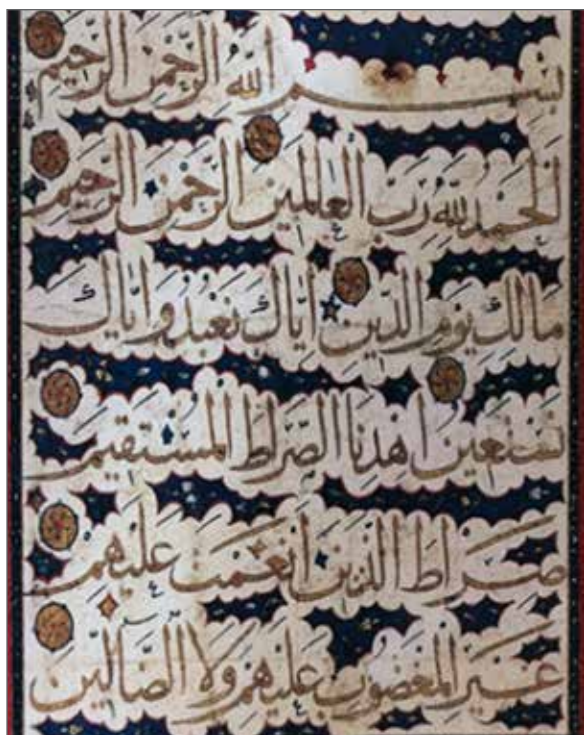 بِسْمِ اللّٰهِ الرَّحْمٰنِ الرَّحِيْمِ
اَلْحَمْدُ لِلّٰهِ رَبِّ الْعَالَمِيْنَ الرَّحْمٰنِ الرَّحِيْمِ
مَالِكِ يَوْمِ الدِّيْنِ اِيَّاكَ نَعْبُدُ وَاِيَّاكَ
نَسْتَعِيْنُ اِهْدِنَا الصِّرَاطَ الْمُسْتَقِيْمَ
صِرَاطَ الَّذِيْنَ اَنْعَمْتَ عَلَيْهِمْ
غَيْرِ الْمَغْضُوْبِ عَلَيْهِمْ وَلَا الضَّآلِّيْنَ